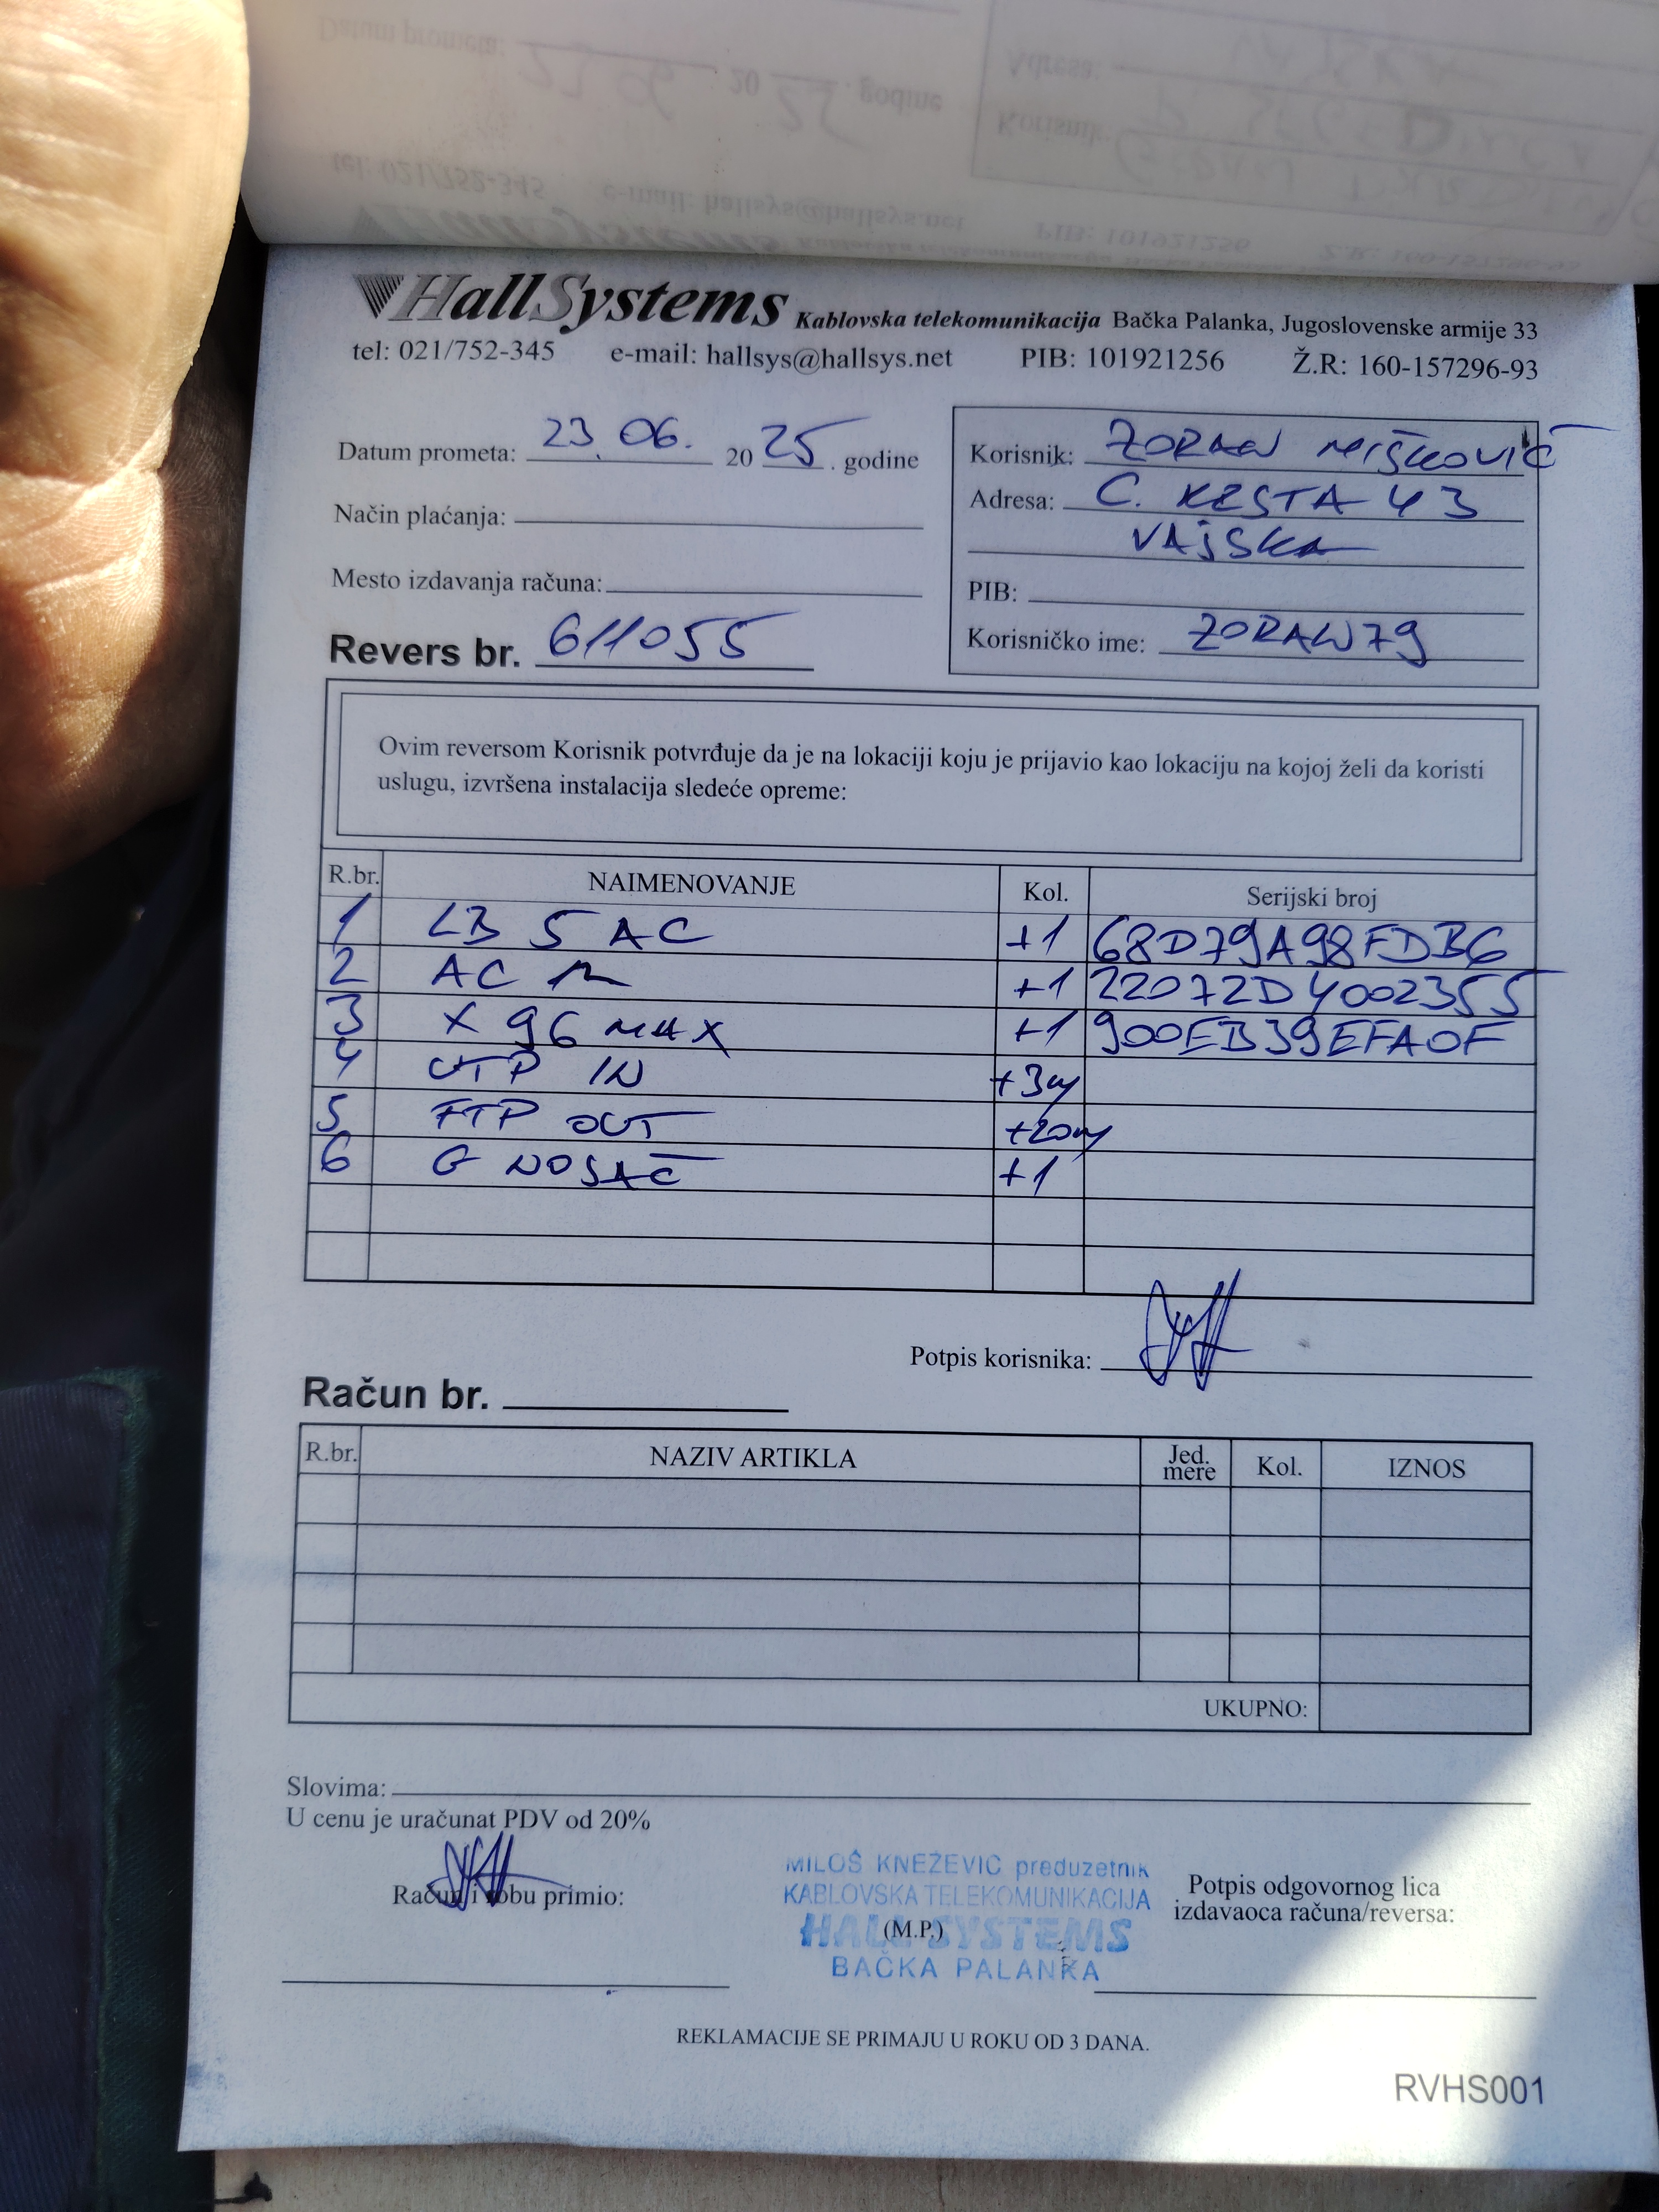 HallSystems Kablovska telekomunikacija Bačka Palanka, Jugoslovenske armije 33
tel: 021/752-345 e-mail: hallsys@hallsys.net PIB: 101921256 Ž.R: 160-157296-93
Datum prometa: 23. 06. 2025. godine
Način plaćanja:
Mesto izdavanja računa:
Revers br. 611055
Korisnik: ZORAN MIŠKOVIĆ
Adresa: C. KESTA 43
VAJSKA
PIB:
Korisničko ime: ZORAN79
Ovim reversom Korisnik potvrđuje da je na lokaciji koju je prijavio kao lokaciju na kojoj želi da koristi
uslugu, izvršena instalacija sledeće opreme:
R.br. NAIMENOVANJE Kol. Serijski broj
1 LB 5 AC +1 68D79A98FDB6
2 AC +1 22072D4002355
3 X 96 MAX +1 900EB39EFA0F
4 UTP IN +3m
5 FTP OUT +20m
6 G NOSAČ +1
Potpis korisnika:
Račun br.
R.br. NAZIV ARTIKLA Jed. mere Kol. IZNOS
UKUPNO:
Slovima:
U cenu je uračunat PDV od 20%
Račun i robu primio:
MILOŠ KNEŽEVIĆ preduzetnik
KABLOVSKA TELEKOMUNIKACIJA
HALL SYSTEMS
(M.P.)
BAČKA PALANKA
Potpis odgovornog lica
izdavaoca računa/reversa:
REKLAMACIJE SE PRIMAJU U ROKU OD 3 DANA.
RVHS001